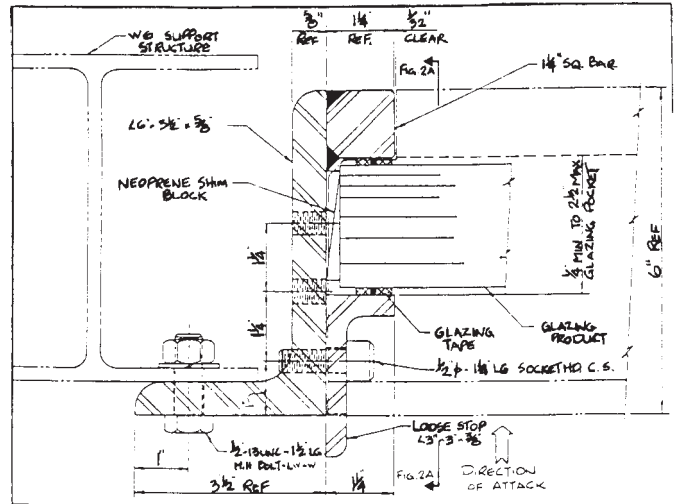 5/8" 1¼ 1/32"
REF REF. CLEAR
W6 SUPPORT
STRUCTURE
FIG. 2A
1¼" SQ. BAR
L6" x 3½" x 5/8"
NEOPRENE SHIM
BLOCK
1¼
1¼
¼ MIN TO 2½ MAX
GLAZING POCKET
6" REF
GLAZING
TAPE
GLAZING
PRODUCT
½ φ - 1¼ LG SOCKET HD. C.S.
LOOSE STOP
L3" - 3" - 3/8"
½-13UNC-1½ LG
H.H BOLT-L.W-W
1"
3½ REF
1¼
FIG. 2A
DIRECTION
OF ATTACK